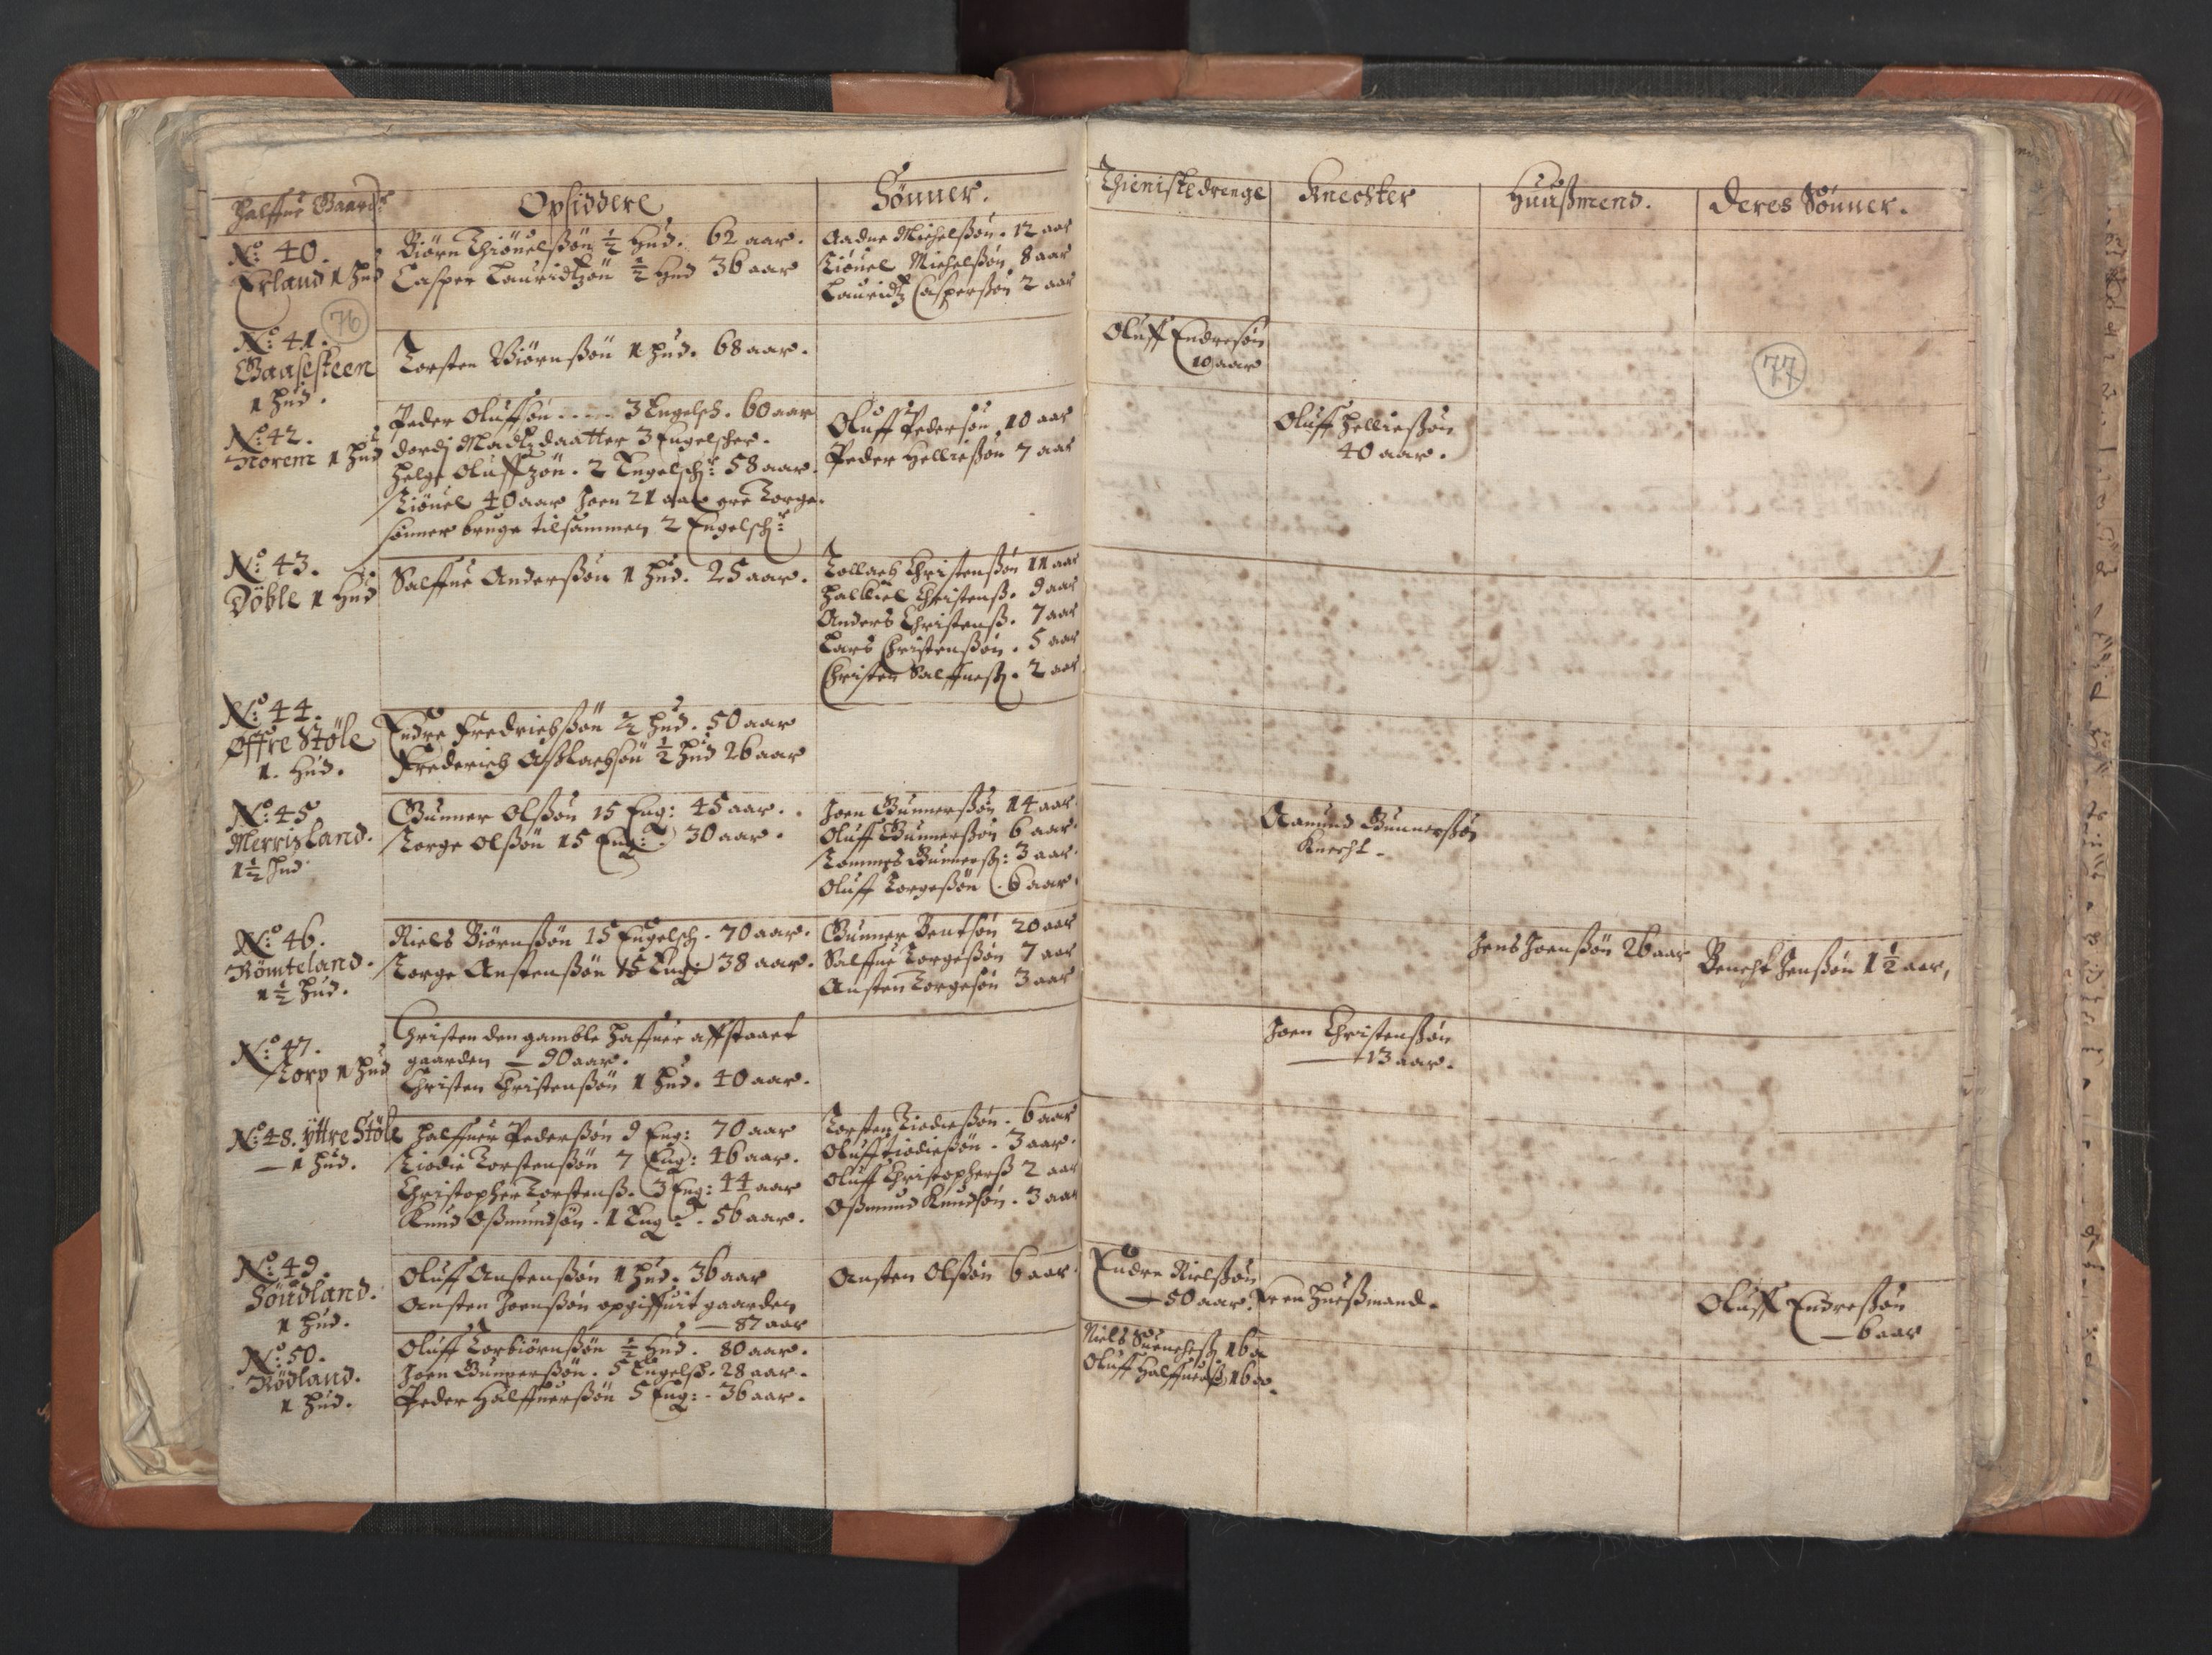 Halffue Gaarde
Opsiddere
Sønner.
No: 40.
Erland 1 Hud
Biørn Thiøuelsßøn ½ Hud. 62 aar.
Casper Lauridtzøn ½ Hud 36 aar
Aadne Michelßøn. 12 aar
Tiøuel Michelßøn 8 aar
Lauridtz Casperßøn 2 aar
76
No: 41.
Gaasesteen
1 Hud.
Torsten Biørnßøn 1 Hud. 68 aar.
No: 42.
Norem 1 Hud
Peder Oluffsøn ..... 3 Engelsch. 60 aar
Dordj Madtzdaatter 3 Engelscher.
Helge Oluffzøn. 2 Engelsch: 58 aar.
Tiøuel 40 aar Joen 21 aar Torge
sønner bruge tilsammen 2 Engelsch:
Oluff Pedersøn 10 aar
Peder Helließøn 7 aar
No: 43.
Døble 1 Hud
Salffue Anderßøn 1 Hud. 25 aar.
Tollach Christenßøn 11 aar
Halkiel Christenß. 9 aar
Anders Christenß. 7 aar
Lars Christenßøn. 5 aar
Christen Salffueß. 2 aar
No: 44.
Øffre Støle
1. Hud.
Endre Fredrichßøn ½ Hud. 50 aar
Frederich Aßlachsøn ½ Hud 26 aar
No: 45
Merrisland.
1½ Hud
Gunner Olßøn 15 Eng: 45 aar.
Torge Olßøn 15 Eng: 30 aar.
Joen Gunnerßøn 14 aar
Oluff Gunnerßøn 6 aar.
Tommes Gunnerß: 3 aar.
Oluff Torgeßøn . 6 aar.
No: 46.
Römteland.
1½ Hud.
Niels Biørnßøn 15 Engelsch. 70 aar.
Torge Anstenßøn 15 Eng: 38 aar.
Gunner Bentsøn 20 aar
Salffue Torgeßøn 7 aar
Ansten Torgesøn 3 aar
No: 47.
Torp 1 Hud
Christen den gamble Haffuer affstaaet
gaarden — 90 aar.
Christen Christenßøn 1 Hud. 40 aar.
No: 48. ÿttre Støle
— 1 Hud.
Halffuer Pederßøn 9 Eng: 70 aar
Tiodie Torstenßøn 7 Eng: 46 aar.
Christopher Torstenß. 3 Eng: 44 aar
Knud Oßmundsøn. 1 Eng:. 50 aar.
Torsten Tiodießøn. 6 aar
Oluff tiodießøn. 3 aar.
Oluff Christopherß 2 aar
Oßmund Knudsøn. 3 aar
No: 49.
Søudland.
1 Hud.
Oluff Anstenßøn 1 Hud. 36 aar
Ansten Joenßøn opgiffuit gaarden
— 87 aar
Ansten Olßøn 6 aar
No: 50.
Rödland.
1 Hud.
Oluff Torbiørnßøn ½ Hud. 80 aar.
Joen Gunnerßøn. 5 Engelsch. 28 aar.
Peder Halffuerßøn 5 Eng:. 36 aar.
Thienistedrenge
Knechter
Huußmend.
Deres Sønner.
Oluff Endresøn
10 aar
77
Oluff Helließøn
40 aar.
Aamund Gunnerßøn
Knecht.
Jens Joenßøn 26 aar
Bencht Jenßøn 1½ aar,
Joen Christenßøn
— 13 aar.
Endre Nielßøn
— 50 aar. er en Hueßmand.
Oluff Endreßøn
— 6 aar
Niels 16 a
Oluff Halffuerß 16 a.